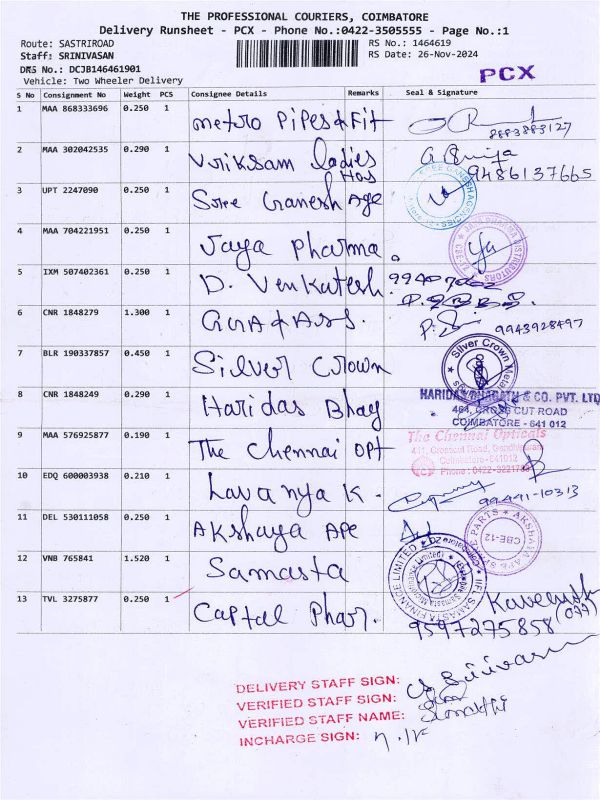 THE PROFESSIONAL COURIERS, COIMBATORE
Delivery Runsheet - PCX - Phone No.:0422-3505555 - Page No.:1
Route: SASTRIROAD RS No.: 1464619
Staff: SRINIVASAN RS Date: 26-Nov-2024
DRS No.: DCJB146461901
Vehicle: Two Wheeler Delivery PCX
S No Consignment No Weight PCS Consignee Details Remarks Seal & Signature
1 MAA 868333696 0.250 1 Metro Pipes & Fit 8883883127
2 MAA 302042535 0.290 1 Vriksam ladies Hos 9486137665
3 UPT 2247090 0.250 1 Sree Ganesh Age
4 MAA 704221951 0.250 1 Jaya Pharma
5 IXM 507402361 0.250 1 D. Venkatesh
6 CNR 1848279 1.300 1 9943928497
7 BLR 190337857 0.450 1 Silver Crown Silver Crown Metals
8 CNR 1848249 0.290 1 Haridas Bhag HARIDAS BHAGATH & CO. PVT. LTD
464, CROSS CUT ROAD
COIMBATORE - 641 012
9 MAA 576925877 0.190 1 The Chennai Opt The Chennai Opticals
411, Crosscut Road, Gandhipuram
Coimbatore-641012
10 EDQ 600003938 0.210 1 Lavanya K. 99441-10313
11 DEL 530111058 0.250 1 Akshaya APE AKSHAYA APE CBE-12
12 VNB 765841 1.520 1 Samasta IIFL SAMASTA FINANCE LIMITED
13 TVL 3275877 0.250 1 Captal Phar. 9597275858
DELIVERY STAFF SIGN: Srinivasan
VERIFIED STAFF SIGN:
VERIFIED STAFF NAME:
INCHARGE SIGN: